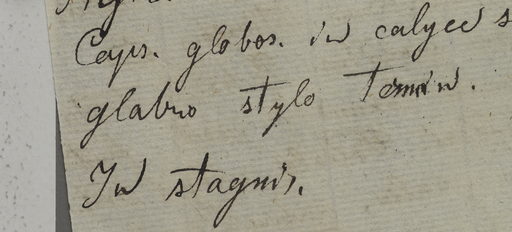 Caps. globos. in calyce
glabro stylo termin.
In stagnis.